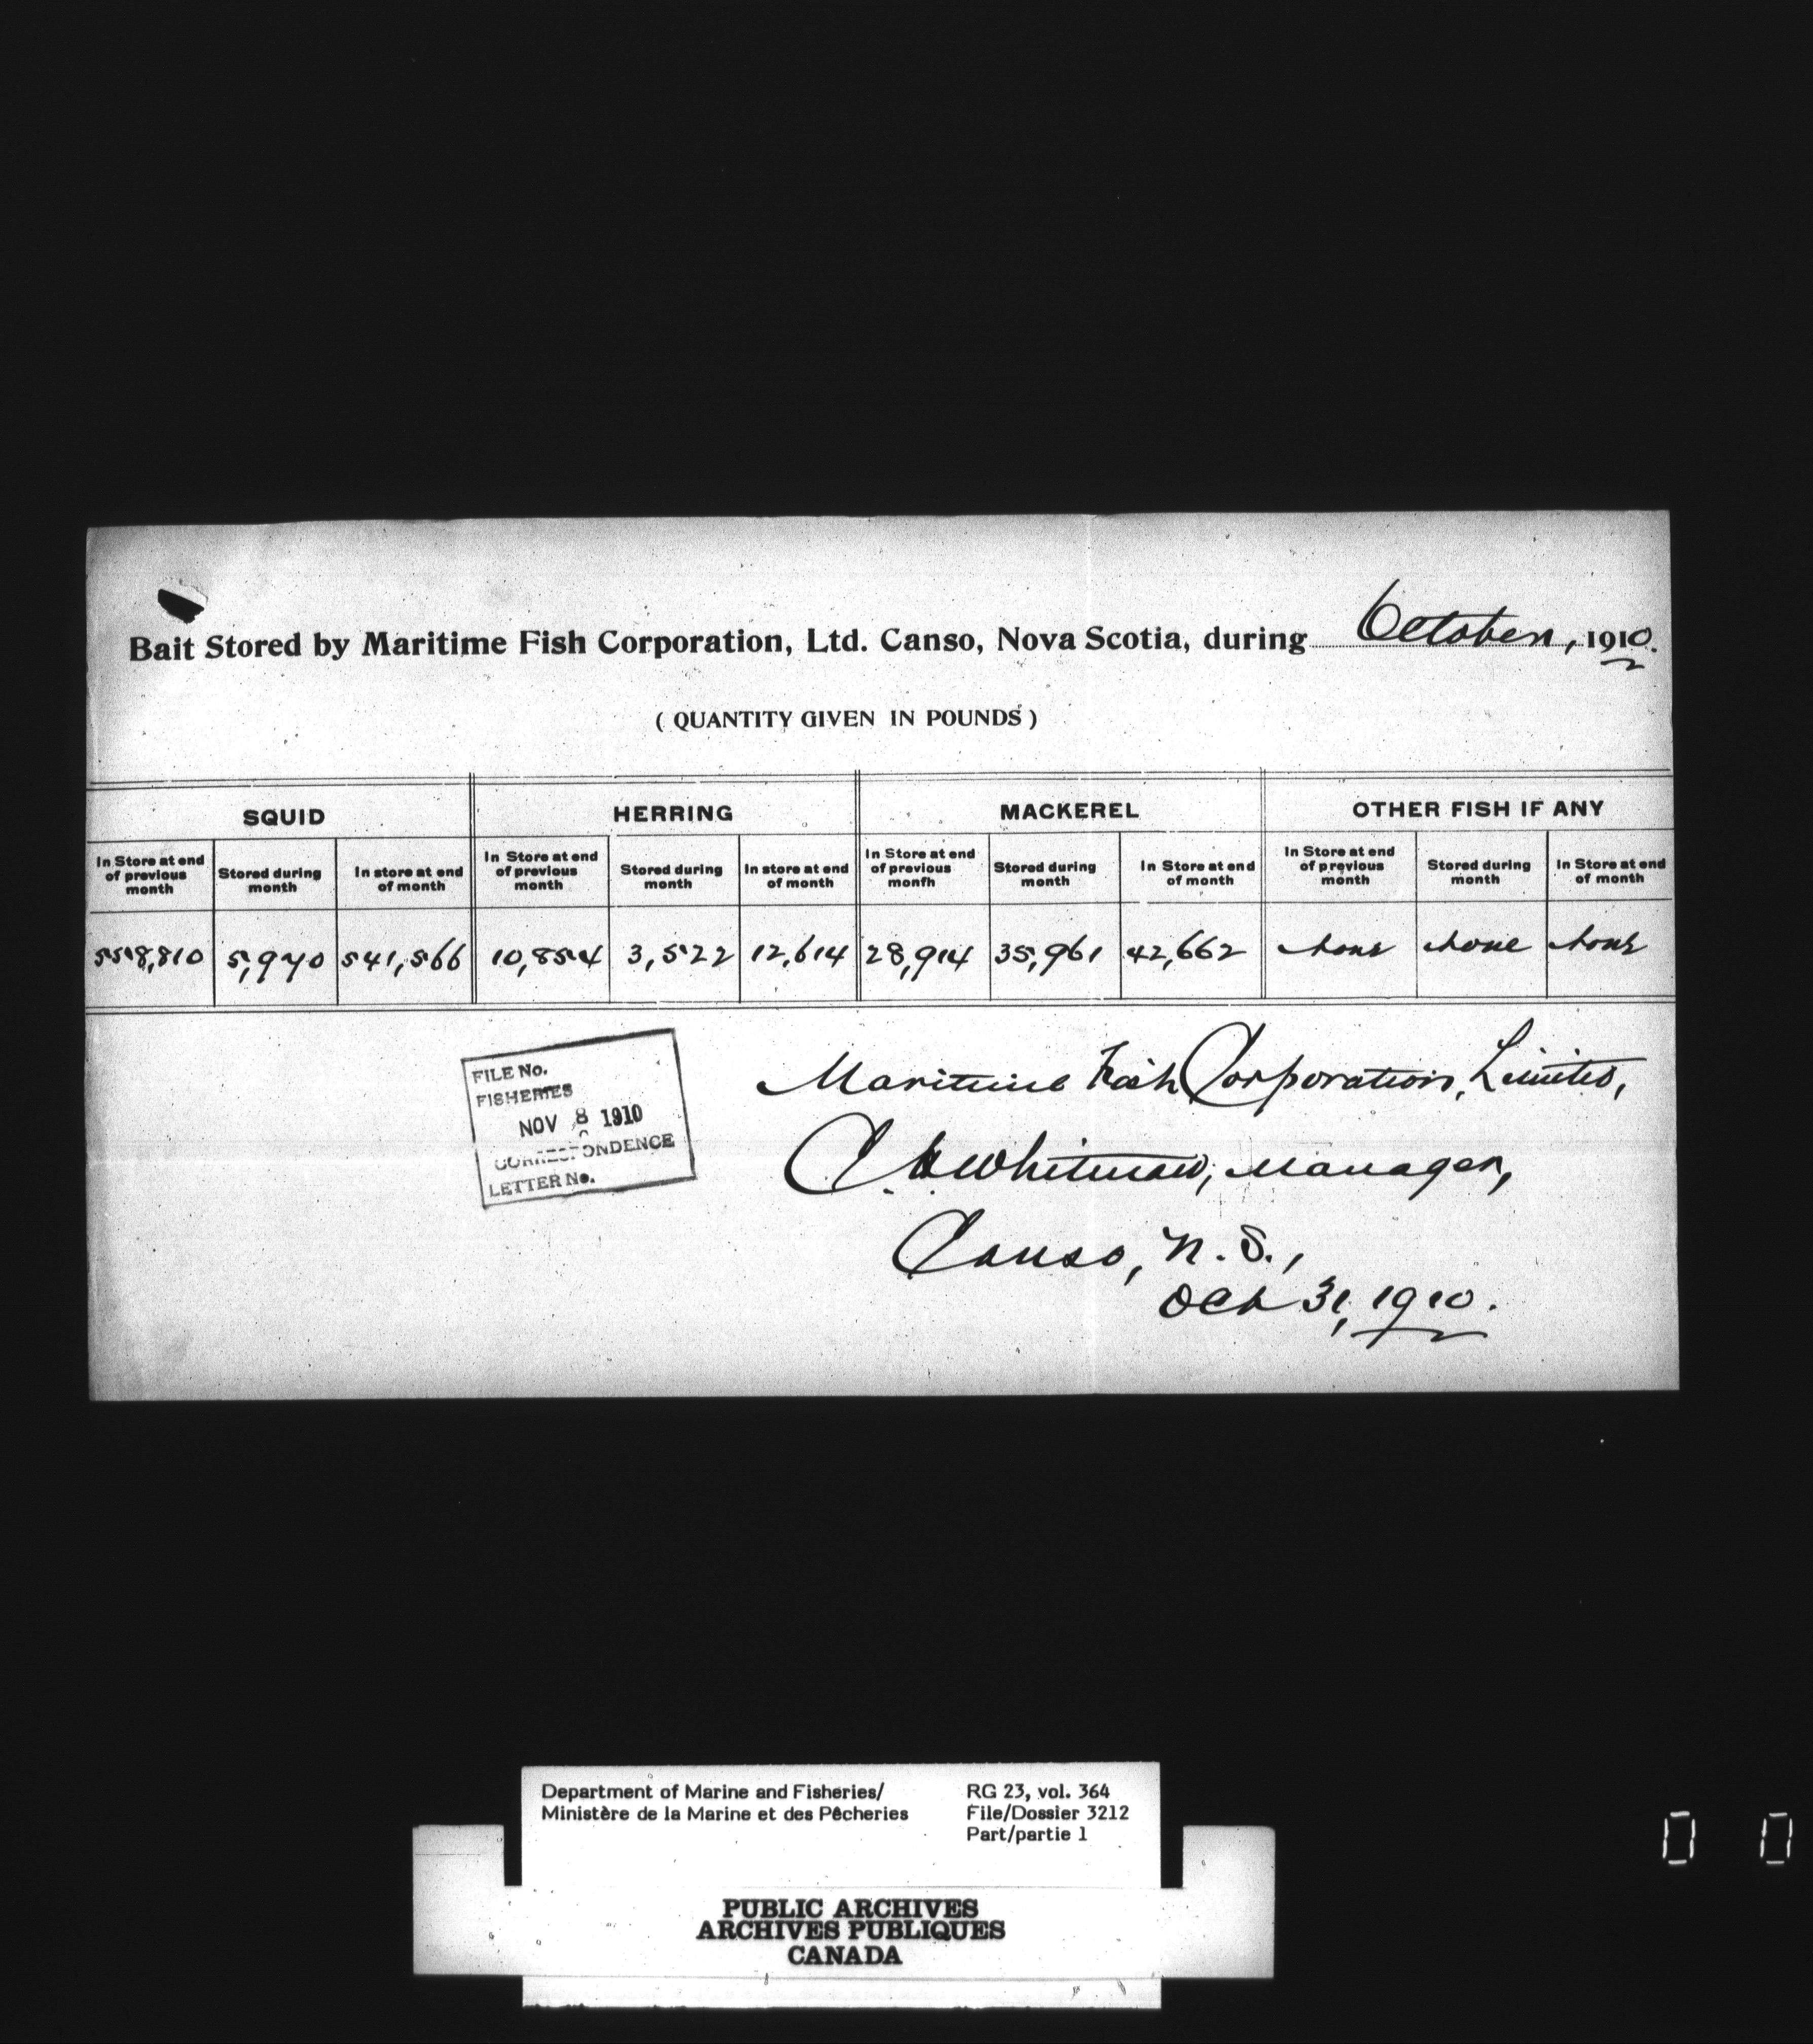 Bait Stored by Maritime Fish Corporation, Ltd. Canso, Nova Scotia, during October, 1910.
( QUANTITY GIVEN IN POUNDS )
SQUID HERRING MACKEREL OTHER FISH IF ANY
In Store at end of previous month Stored during month In store at end of month In Store at end of previous month Stored during month In store at end of month In Store at end of previous monfh Stored during month In Store at end of month In Store at end of previous month Stored during month In Store at end of month
558,810 5,970 541,566 10,854 3,522 12,614 28,914 35,961 42,662 none none none
FILE No.
FISHERIES
NOV 8 1910
CORRESPONDENCE
LETTER No.
Maritime Fish Corporation, Limited,
Whitman, Manager,
Canso, N.S.,
Oct 31, 1910.
Department of Marine and Fisheries/
Ministère de la Marine et des Pêcheries
RG 23, vol. 364
File/Dossier 3212
Part/partie 1
PUBLIC ARCHIVES
ARCHIVES PUBLIQUES
CANADA
0 0